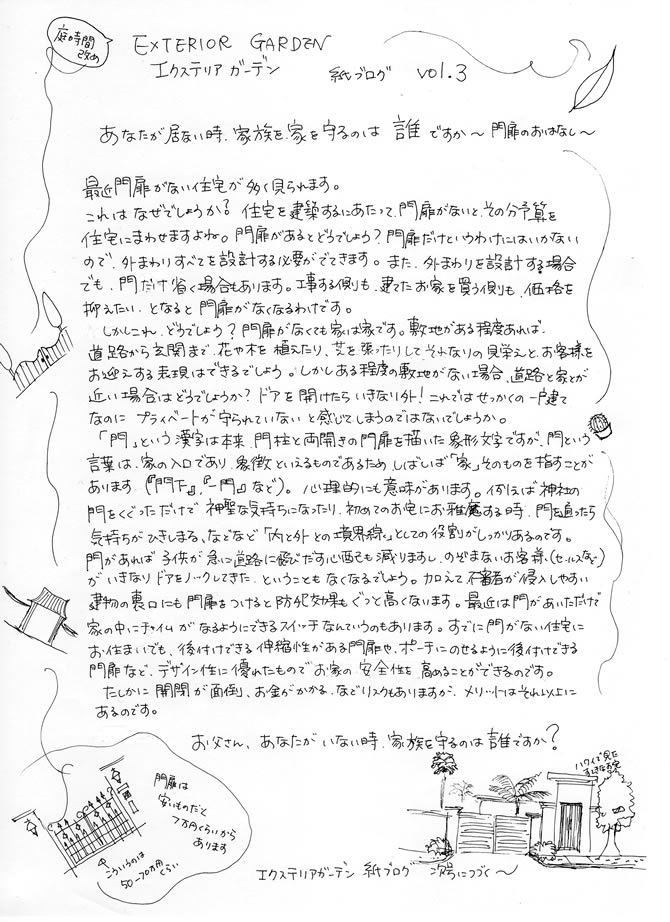 庭時間
改め
EXTERIOR GARDEN
エクステリア ガーデン 紙ブログ vol.3
あなたが居ない時、家族を、家を守るのは 誰 ですか～ 門扉のおはなし～
最近門扉がない住宅が多く見られます。
これはなぜでしょうか？ 住宅を建築するにあたって、門扉がないと、その分予算を
住宅にまわせますよね。門扉があるとどうでしょう？門扉だけというわけにはいかない
ので、外まわりすべてを設計する必要がでてきます。また、外まわりを設計する場合
でも、門だけ省く場合もあります。工事する側も、建てたお家を買う側も、価格を
抑えたい、となると門扉がなくなるわけです。
しかしこれ、どうでしょう？門扉がなくても家は家です。敷地がある程度あれば、
道路から玄関まで、花や木を植えたり、芝を張ったりして、それなりの見栄えと、お客様を
お迎えする表現はできるでしょう。しかしある程度の敷地がない場合、道路と家とが
近い場合はどうでしょうか？ドアを開けたらいきなり外！これではせっかくの一戸建て
なのに プライベートが守られていない と感じてしまうのではないでしょうか。
「門」という漢字は本来、門柱と両開きの門扉を描いた象形文字ですが、門という
言葉は、家の入口であり、象徴といえるものであるため、しばしば「家」そのものを指すことが
あります（『門下』,『一門』など）。心理的にも意味があります。例えば神社の
門をくぐっただけで 神聖な気持ちになったり、初めてのお宅にお邪魔する時、門を通ったら
気持ちがひきしまる、などなど「内と外との境界線」としての役割がしっかりあるのです。
門があれば 子供が急に道路に飛びだす心配も減りますし、のぞまないお客様、（セールスなど）
がいきなりドアをノックしてきた、ということもなくなるでしょう。加えて不審者が侵入しやすい
建物の裏口にも門扉をつけると防犯効果もぐっと高くないます。最近は門があいただけで
家の中にチャイムがなるようにできるスイッチなんていうのもあります。すでに門がない住宅に
お住まいでも、後付けできる伸縮性がある門扉や、ポーチにのせるように後付けできる
門扉など、デザイン性に優れたものでお家の安全性を高めることができるのです。
たしかに 開閉が面倒、お金がかかる、などリスクもありますが、メリットはそれ以上に
あるのです。
お父さん、あなたがいない時、家族を守るのは誰ですか？
門扉は
安いものだと
7万円くらいから
あります
こういうのは
50-70万円くらい
ハワイで見た
すてきなお宅
エクステリアガーデン 紙ブログ 次号につづく～